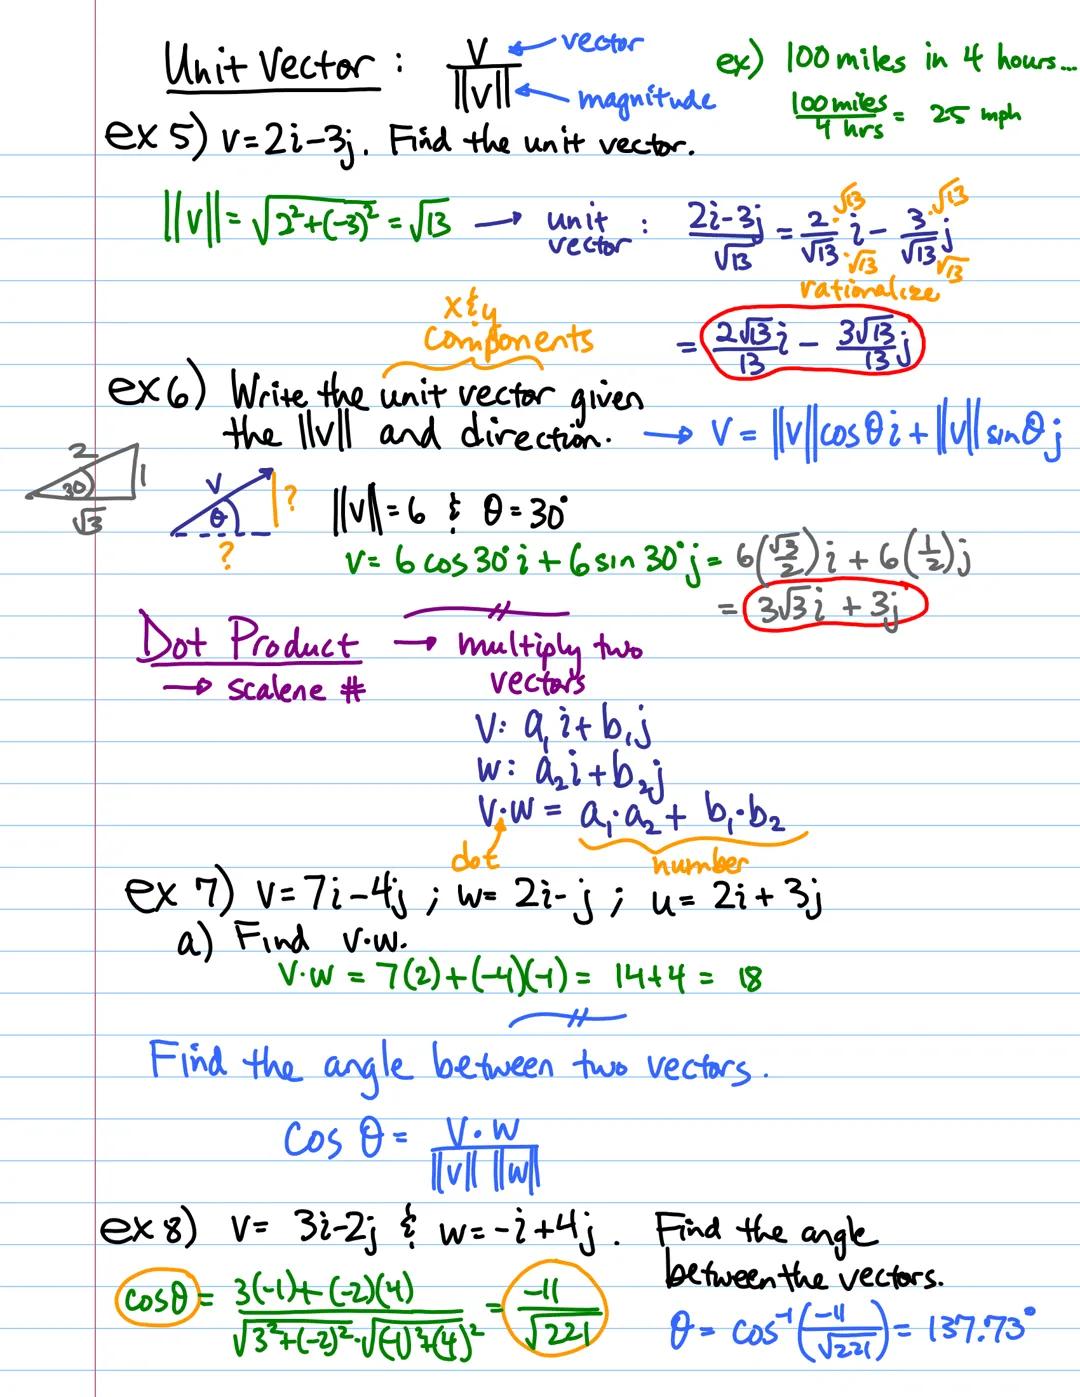 Unit Vector : V/||v|| ← vector
← magnitude
ex) 100 miles in 4 hours...
100 miles/4 hrs = 25 mph
ex 5) v=2i-3j. Find the unit vector.
||v|| = √(2²+(-3)²) = √13 → unit vector : (2i-3j)/√13 = 2/√13 ·√13/·√13 i - 3/√13 ·√13/√13 j
rationalize
= 2√13/13 i - 3√13/13 j
x & y
components
ex 6) Write the unit vector given
the ||v|| and direction. → V = ||v||cosθi + ||v||sinθj
2
30
1
√3
v
θ
?
?
||v|| = 6 & θ = 30°
v = 6 cos 30° i + 6 sin 30° j = 6(√3/2)i + 6(1/2)j
= 3√3i + 3j
Dot Product → multiply two
vectors
→ scalene #
v: a₁i + b₁j
w: a₂i + b₂j
v·w = a₁·a₂ + b₁·b₂
dot
number
ex 7) v=7i-4j ; w= 2i-j ; u= 2i+3j
a) Find v·w.
v·w = 7(2)+(-4)(-1) = 14+4 = 18
Find the angle between two vectors.
cos θ = v·w/||v|| ||w||
ex 8) v= 3i-2j & w=-i+4j. Find the angle
between the vectors.
cosθ = (3(-1)+(-2)(4))/(√(3²+(-2)²)·√((-1)²+(4)²)) = -11/√221
θ = cos⁻¹(-11/√221) = 137.73°